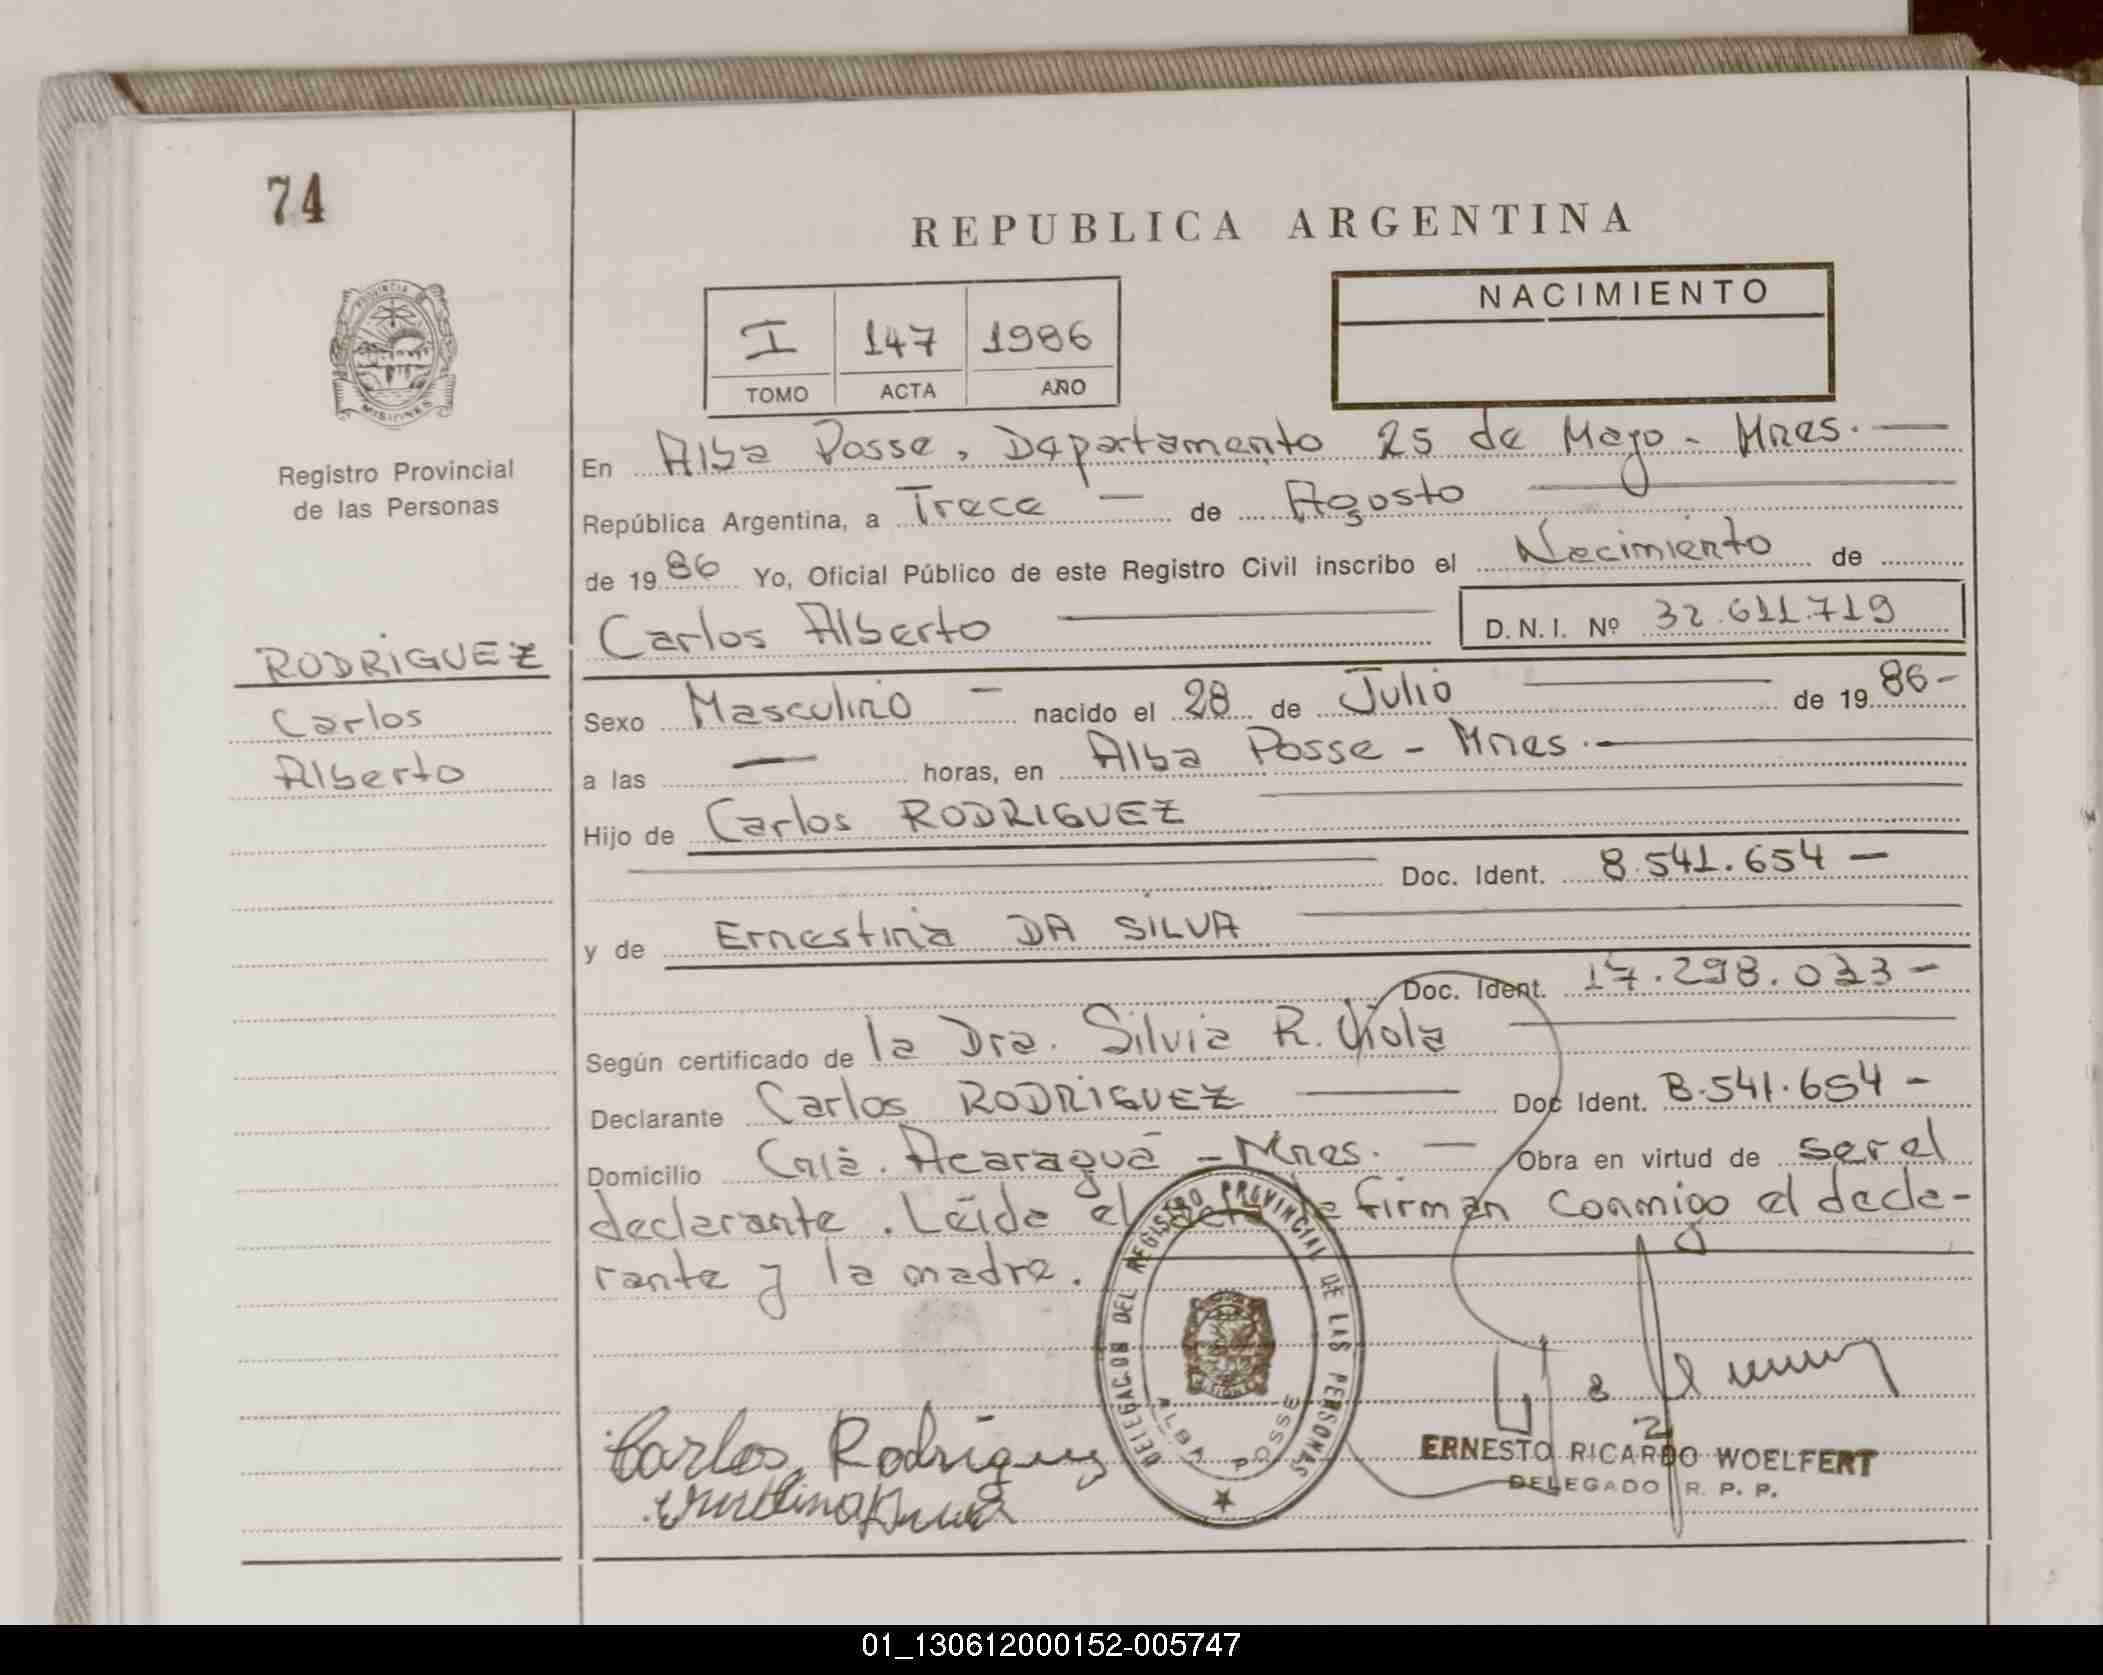 74
REPUBLICA ARGENTINA
NACIMIENTO
I 147 1986
TOMO ACTA AÑO
PROVINCIA
MISIONES
Registro Provincial
de las Personas
RODRIGUEZ
Carlos
Alberto
En Alba Posse, Departamento 25 de Mayo - Mnes.
República Argentina, a Trece — de Agosto
de 1986 Yo, Oficial Público de este Registro Civil inscribo el Nacimiento de
Carlos Alberto D.N.I. Nº 32.611.719
Sexo Masculino — nacido el 28 de Julio de 1986-
a las — horas, en Alba Posse - Mnes.
Hijo de Carlos RODRIGUEZ
Doc. Ident. 8.541.654 —
y de Ernestina DA SILVA
Doc. Ident. 17.298.033 -
Según certificado de la Dra. Silvia R. Viola
Declarante Carlos RODRIGUEZ Doc Ident. 8.541.654 -
Domicilio Cnia. Acaraguá - Mnes. — Obra en virtud de ser el
declarante. Leída el firman conmigo el decla-
rante y la madre.
DELEGACION DEL REGISTRO PROVINCIAL DE LAS PERSONAS
ALBA POSSE
MISIONES
Carlos Rodriguez
ERNESTO RICARDO WOELFERT
DELEGADO R. P. P.
01_130612000152-005747